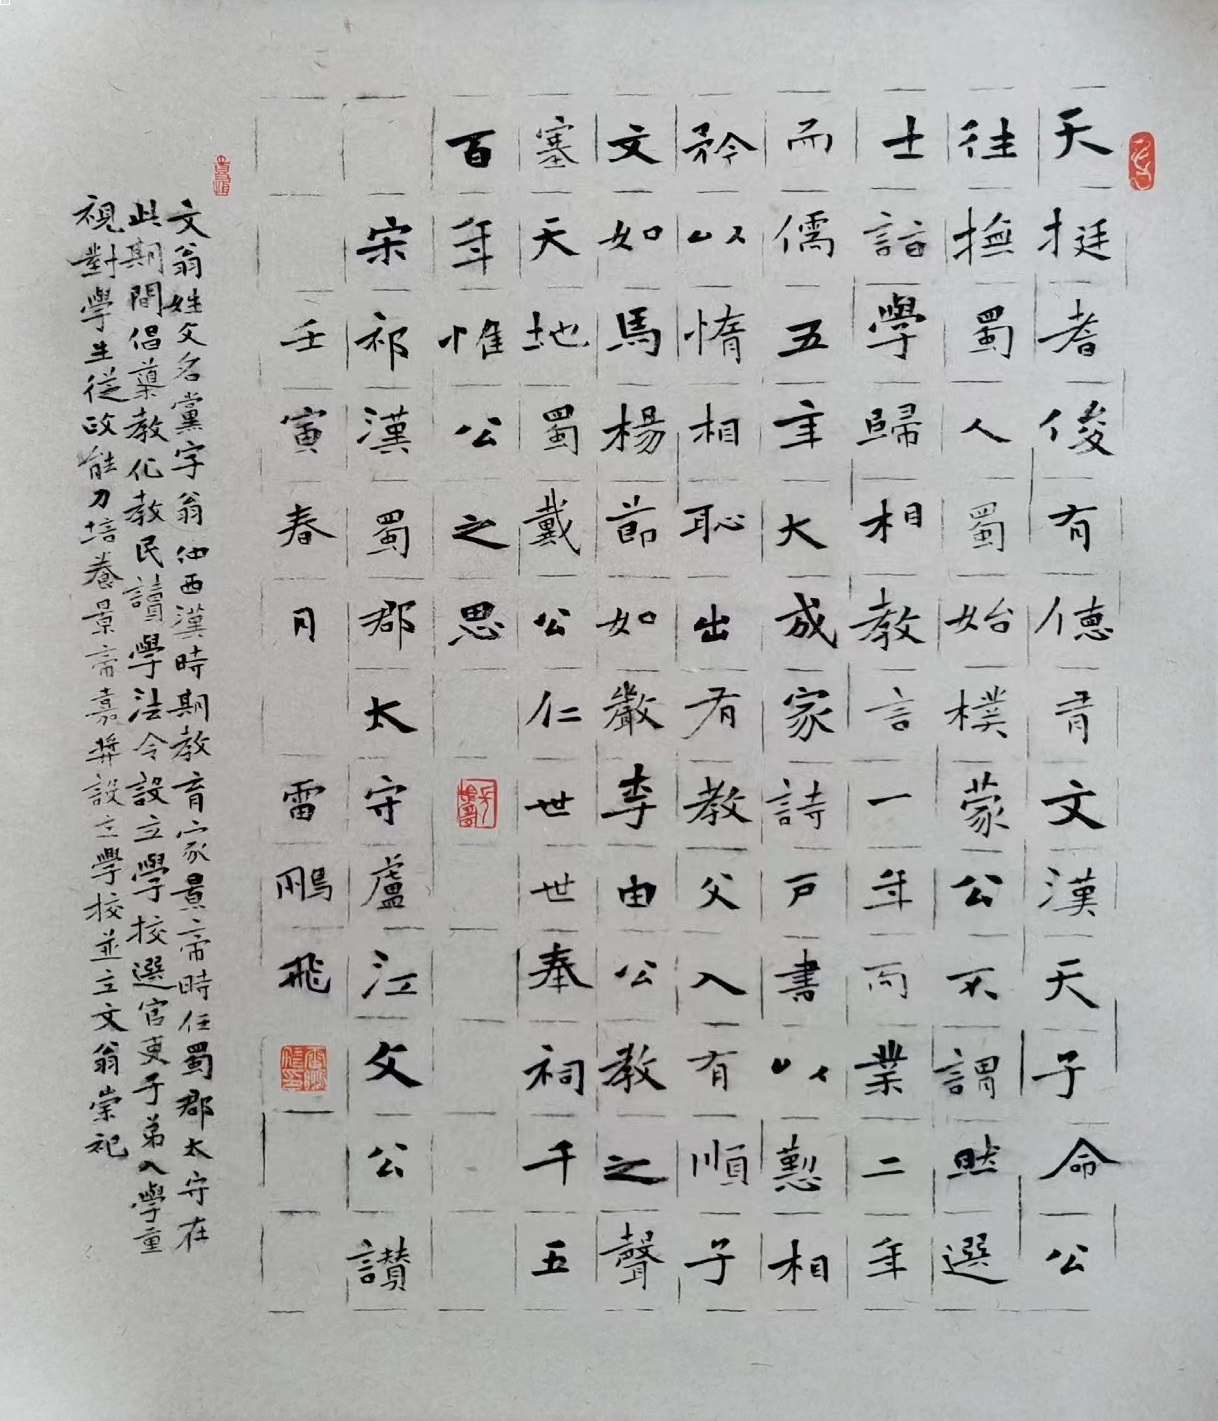 天挺耆俊有德有文漢天子命公
往撫蜀人蜀始樸蒙公不謂然選
士詣學歸相教言一年而業二年
而儒五年大成家詩戶書以懃相
矜以惰相恥出有教父入有順子
文如馬楊節如嚴李由公教之聲
塞天地蜀戴公仁世世奉祠千五
百年惟公之思
宋祁漢蜀郡太守廬江文公讚
壬寅春月 雷鵬飛
文翁姓文名黨字翁仲西漢時期教育家景帝時任蜀郡太守在
此期間倡導教化教民讀學法令設立學校選官吏子弟入學重
視對學生從政能力培養景帝嘉奬設立學校並立文翁崇祀